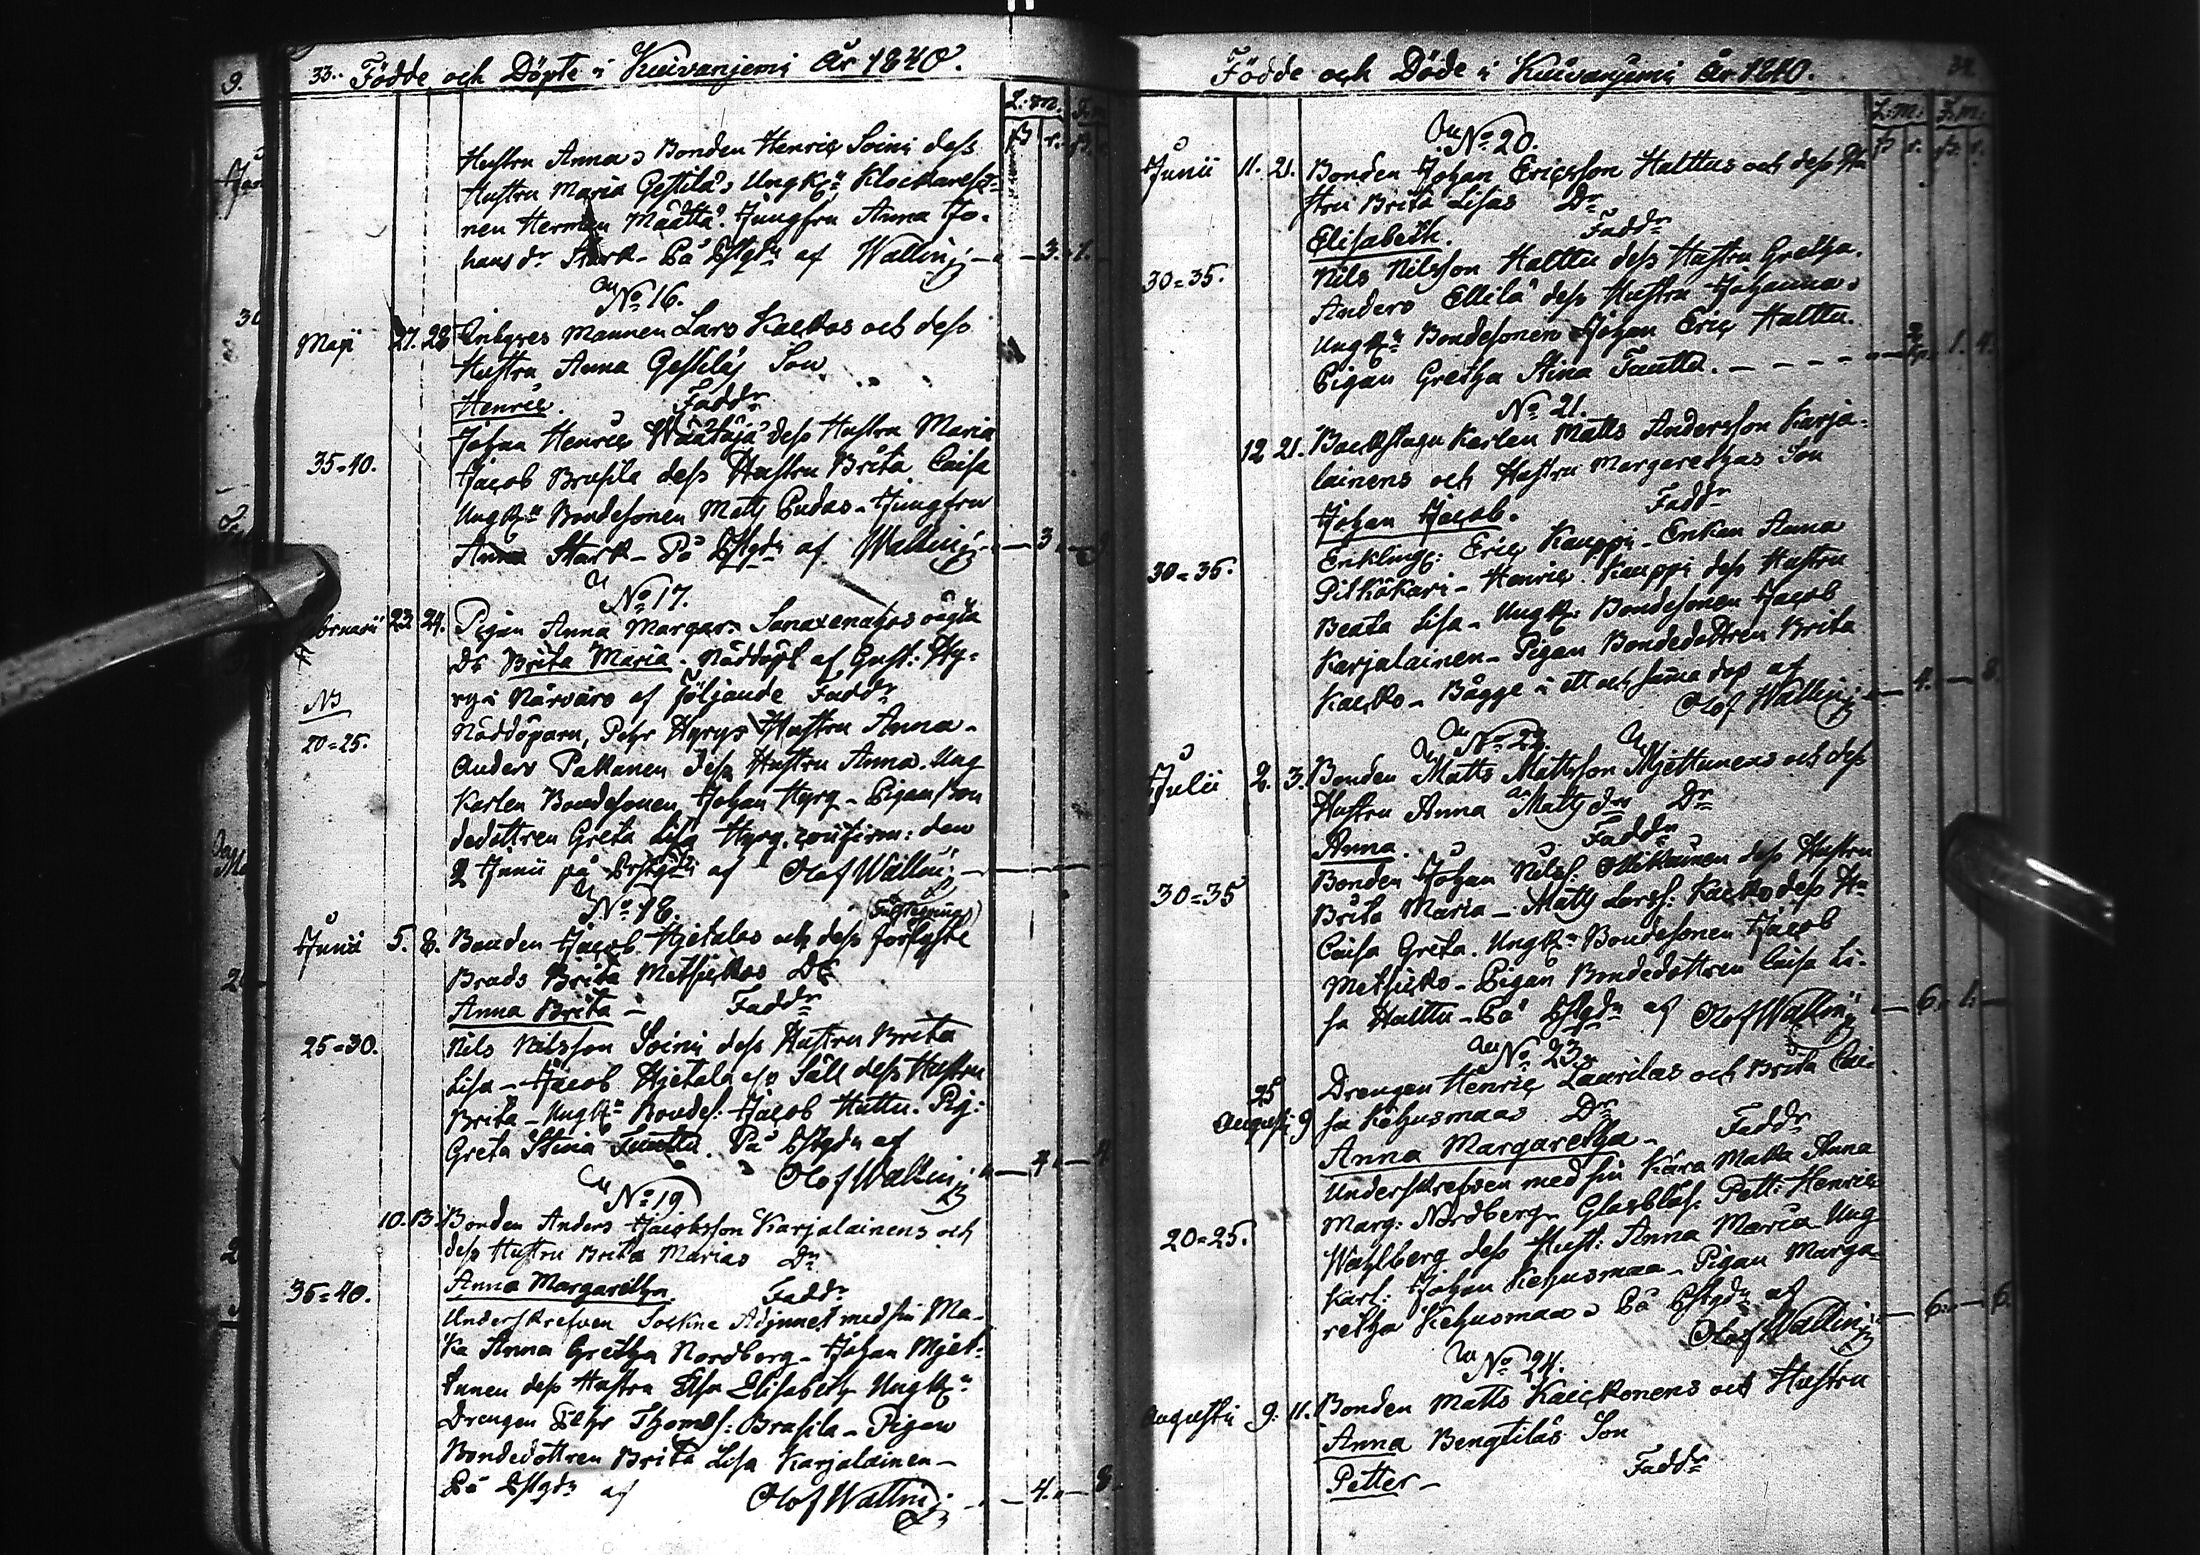 33. Födde och Döpte i Kuivanjemi År 1840.
L. m.
Hustru Anna, Bonden Henric Soini dess
Hustru Maria Gestilä, Ungk:n Klockare
nen Herman Määttä. Jungfru Anna Jo-
hans dr Stark - På af Wallin - 3. 1.
No 16.
Maji 27. 28 Mannen Lars Kackos och dess
Hustru Anna Gestiläs Son
Henric. Fadd:r
35=40. Johan Henric Wäätäjä dess Hustru Maria
Jacob Brusila dess Hustru Brita Caisa
Ungk:n Bondesonen Matts Pudas - Jungfru
Anna Stark - På af Wallin - 3
No 17.
23. 24. Pigan Anna Margar. oägta
Dr Brita Maria. Nöddöpt af Gust: Hy-
ry i Närvaro af följande Fadd:r
NB
20=25. Nöddöparn, Pehr Hyrys Hustru Anna -
Anders Pakkanen dess Hustru Anna. Ung
Karlen Bondesonen Johan Hyry - Pigan Bon
dedottren Greta Lisa Hyry, confirm: den
2 Junii på af Olof Wallin
No 18.
Junii 5. 8. Bonden Jacob Hjetalas och dess
Bruds Brita Metsickos Dr
Anna Brita - Fadd:r
25=30. Nils Nilsson Soini dess Hustru Brita
Lisa - Jacob Hjetala dess Hustru
Brita - Ungk:n Bondes: Jacob Huttu. Pig:
Greta Stina Tuutta. På af
Olof Wallin - 4
No 19
10. 13. Bonden Anders Jacobsson Karjalainens och
dess Hustru Brita Marias Dr
35=40. Anna Margaretha. Fadd:r
Underskrefven Sockne Adjunct med sin Ma-
ka Anna Gretha Nordberg - Johan Mjet-
tunen dess Hustru Elsa Elisabeth Ungk:n
Drengen Pehr Thomas: Brasila - Pigan
Bondedottren Brita Lisa Karjalainen -
På af Olof Wallin - 4. 8
Födde och Döde i Kuivanjemi År 1840. 34.
L. m.
No 20.
Junii 11. 21. Bonden Johan Ericsson Halttus och dess Hu
stru Brita Lisas Dr
Elisabeth. Fadd:r
30=35. Nils Nilsson Halttu dess Hustru Gretha.
Anders Ellilä dess Hustru Johanna,
Ungk:n Bondesonen Johan Eric Halttu.
Pigan Gretha Stina Tuutta. - - - - 1. 4.
No 21.
12 21. Backstugu Karlen Matts Andersson Karja-
lainens och Hustru Margarethas Son
Johan Jacob. Fadd:r
30=35. Enkling: Eric Kauppi - Enkan Anna
Pitkökari - Henric Kauppi dess Hustru
Beata Lisa - Ungk: Bondesonen Jacob
Karjalainen - Pigan Bondedottren Brita
Kacko - Bägge i ett och samma dop af
Olof Wallin - 4. - 8
No 22.
Julii 2. 3. Bonden Matts Mattsson Mjettunens och dess
Hustru Anna Matts dr Dr
Anna. Fadd:r
30=35 Bonden Johan Nils: Ollikainen dess Hustru
Brita Maria - Matts Larss: Kacko dess Hu
Caisa Greta. Ungk:n Bondesonen Jacob
Metsicko - Pigan Bondedottren Caisa Li-
sa Halttu - På af Olof Wallin - 6. -
No 23.
25 Drengen Henric Laurilas och Brita Cai-
Augusti 9 sa Kehusmaas Dr
Anna Margaretha - Fadd:r
Underskrefven med sin Kära Maka Anna
Marg: Nordberg - Glasblås: Pett: Henric
20=25. Wahlberg dess Hust: Anna Maria Ung
Karl: Johan Kehusmaa - Pigan Marga-
retha Kehusmaa - På af
Olof Wallin - 6. - 6.
No 24.
Augusti 9. 11. Bonden Matts Kaickonens och Hustru
Anna Bengtiläs Son
Petter - Fadd:r